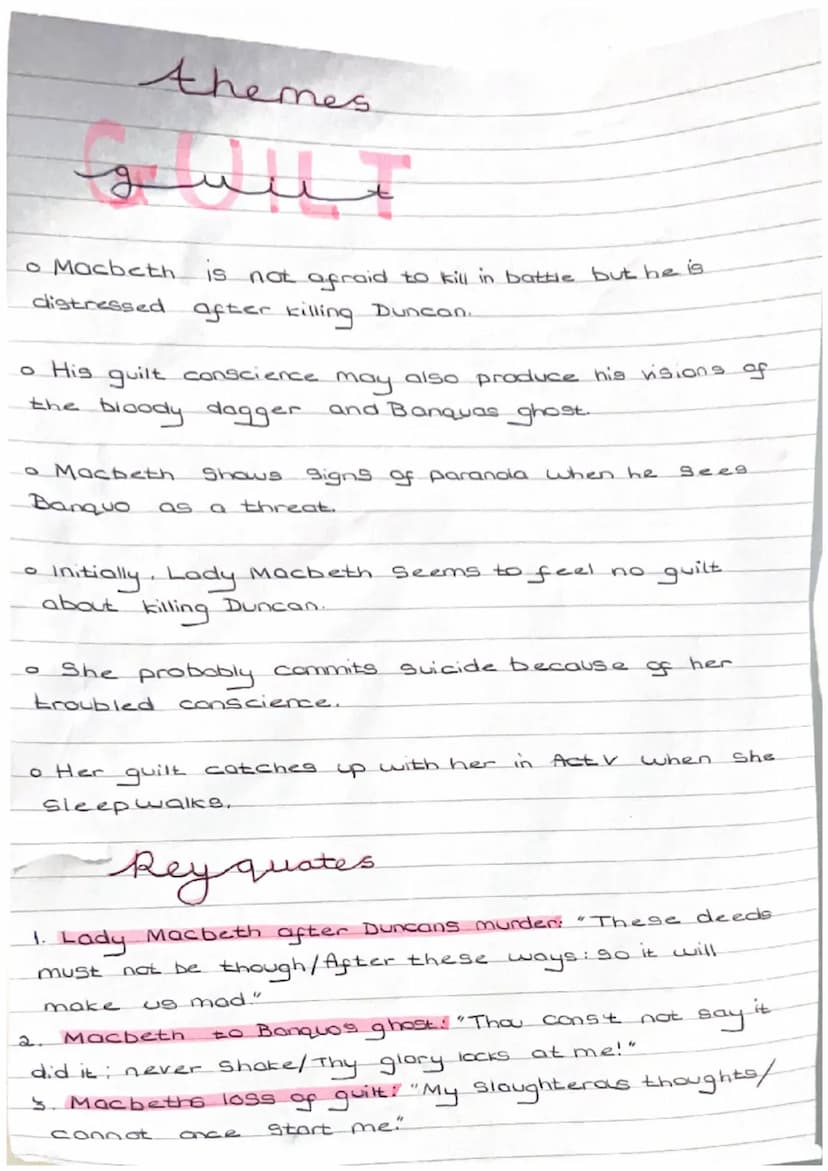 themes
GUILT
guilt
o Macbeth is not afraid to kill in battle but he is
distressed after killing Duncan.
o His guilt conscience may also produce his visions of
the bloody dagger and Banquos ghost.
o Macbeth shows signs of paranoia when he sees
Banquo as a threat.
o Initially, Lady Macbeth seems to feel no guilt
about killing Duncan.
o She probably commits suicide because of her
troubled conscience.
o Her guilt catches up with her in Act V when she
sleepwalks.
Key quotes
1. Lady Macbeth after Duncans murder: "These deeds
must not be though/After these ways: so it will
make us mad."
2. Macbeth to Banquos ghost: "Thou canst not say it
did it; never shake/Thy glory locks at me!"
3. Macbeths loss of guilt: "My slaughterous thoughts/
cannot once start me."